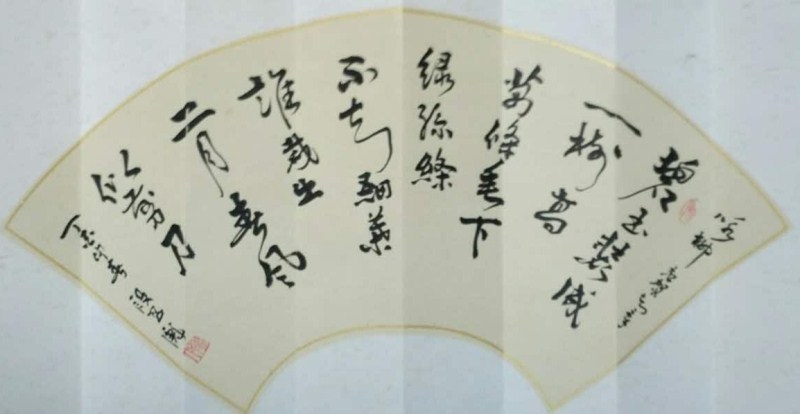 詠柳 賀知章
碧玉裝成
一樹高
萬條垂下
綠絲絛
不知細葉
誰裁出
二月春風
似剪刀
丁亥